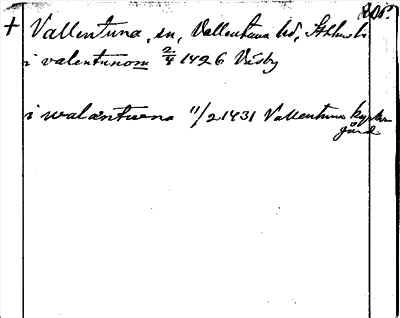 + Vallentuna, sn, Vallentuna hd, Sthlms l.
i valentunom 2/4 1426 Visby
i walæntuna 11/2 1431 Vallentuna kyrko-
gård